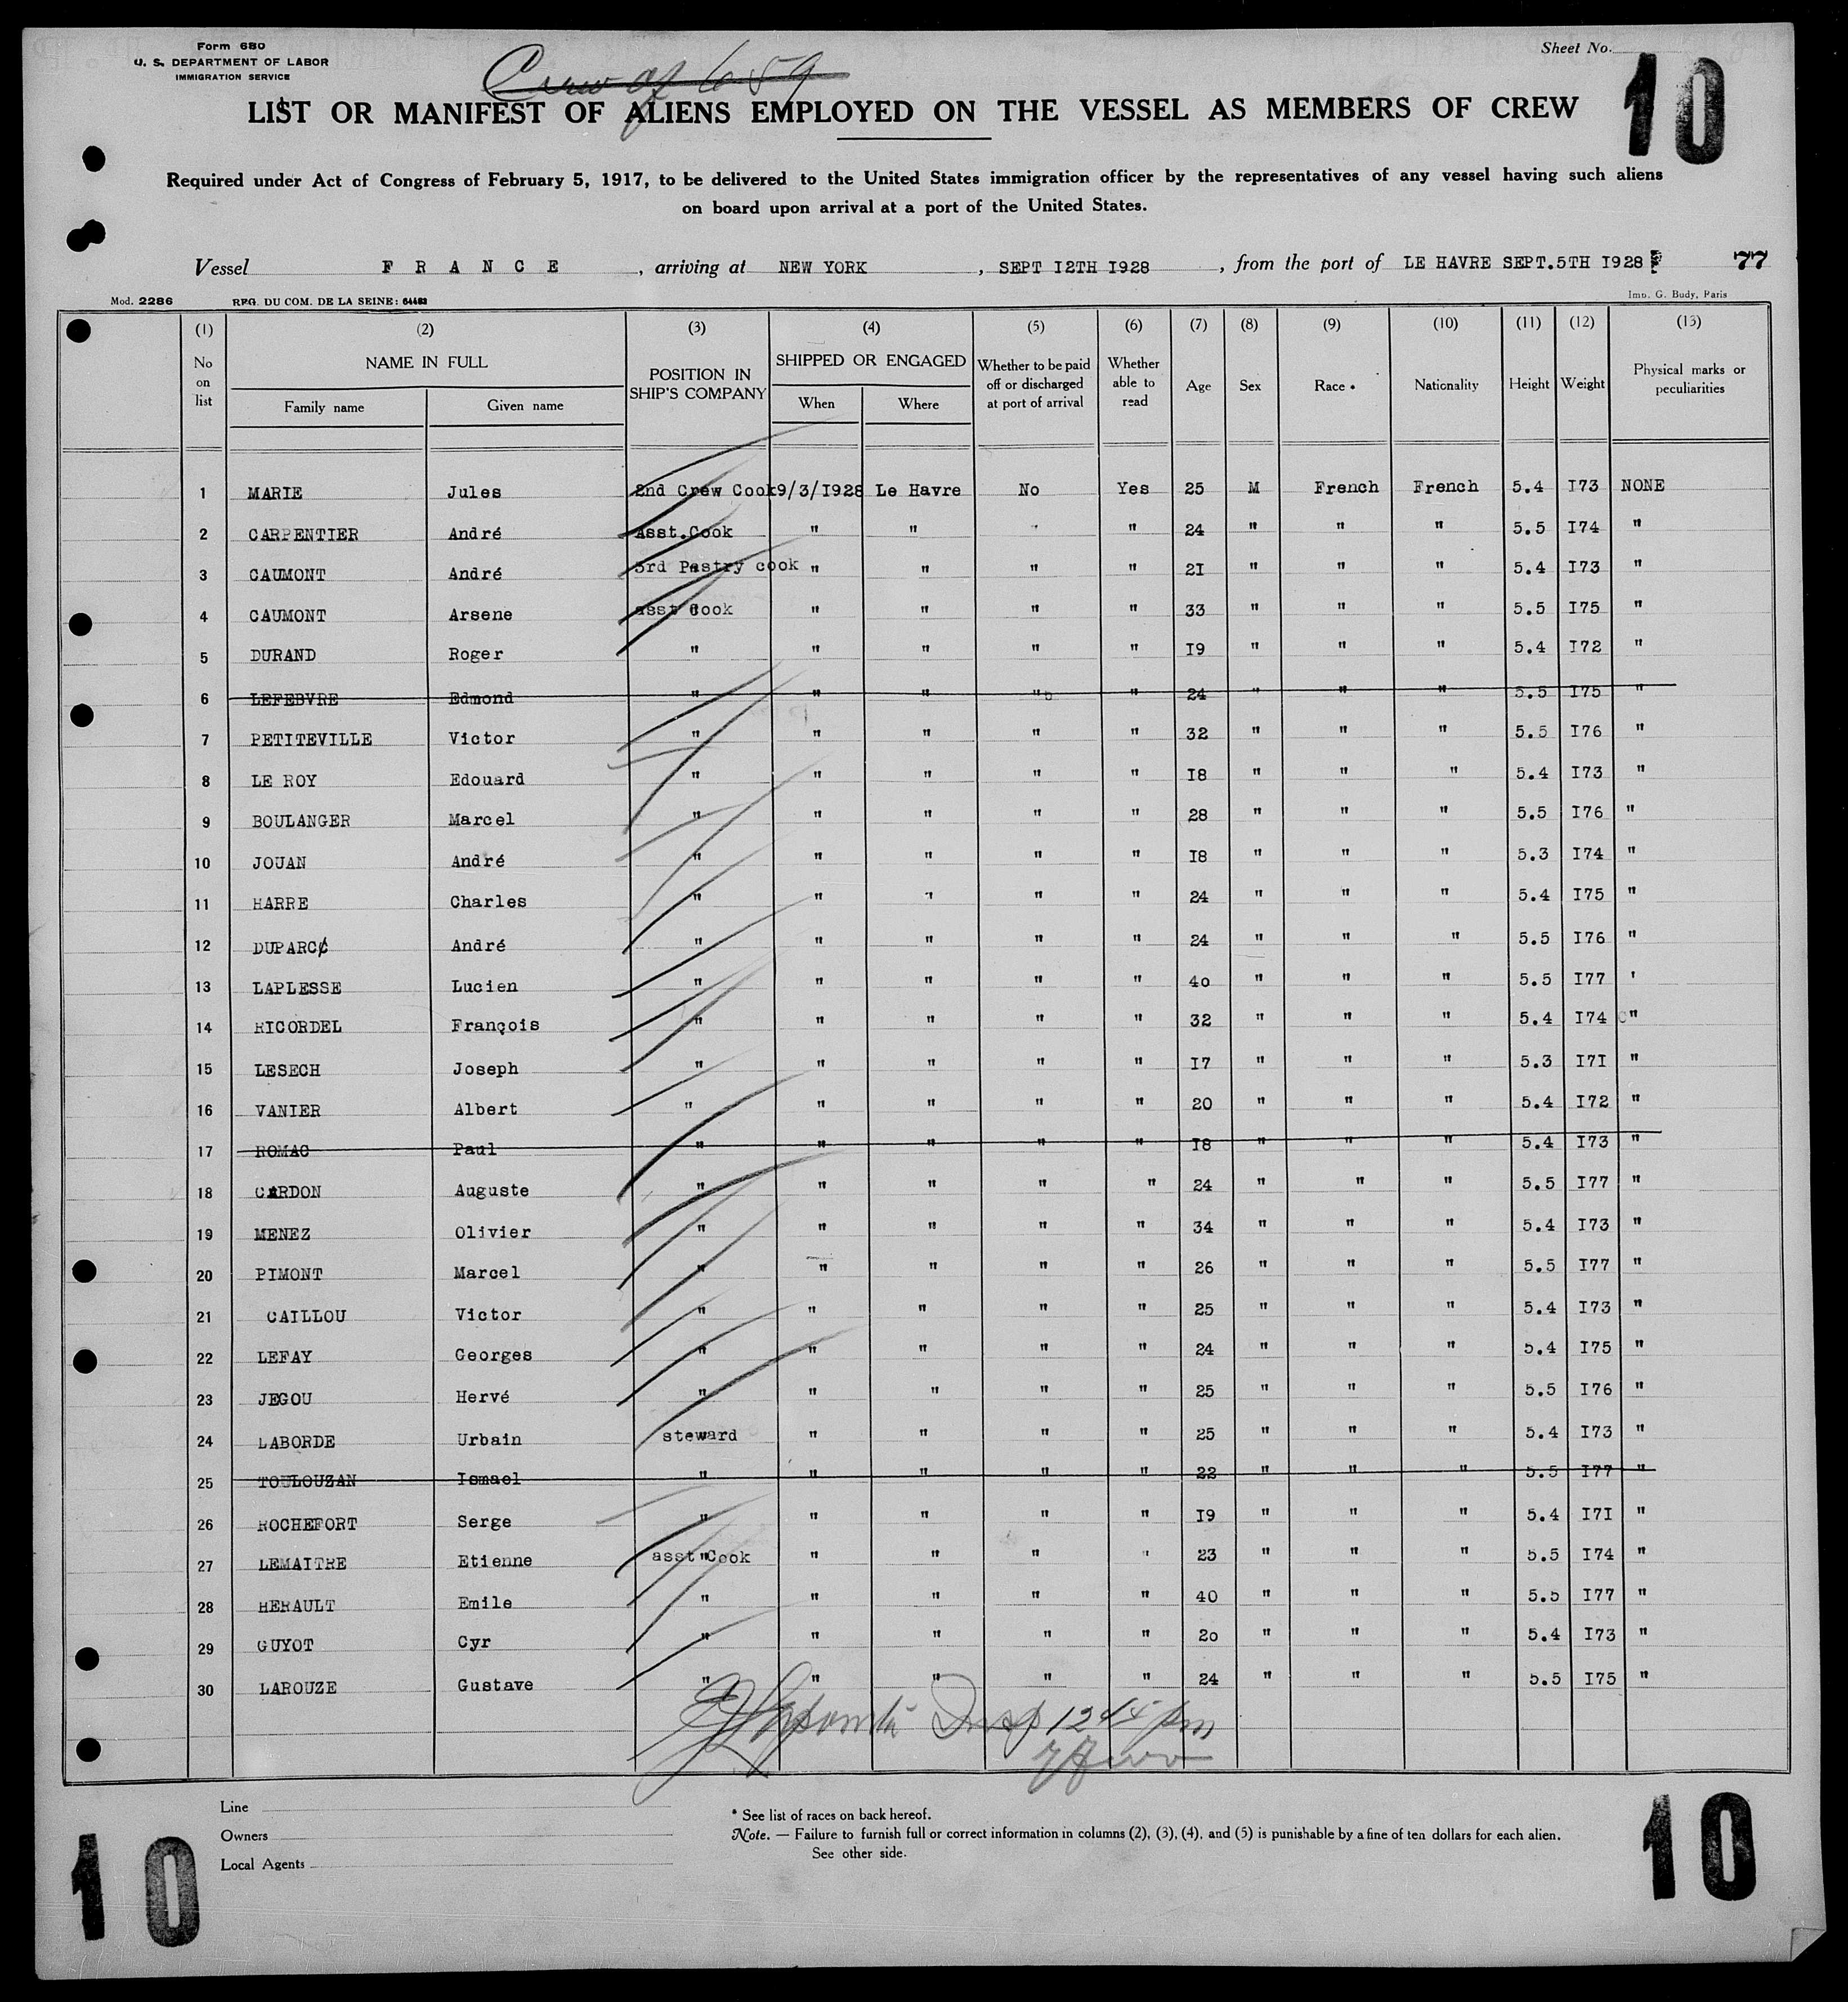 Form 680
U. S. DEPARTMENT OF LABOR
IMMIGRATION SERVICE
Crew of 659
Sheet No.
10
LIST OR MANIFEST OF ALIENS EMPLOYED ON THE VESSEL AS MEMBERS OF CREW
Required under Act of Congress of February 5, 1917, to be delivered to the United States immigration officer by the representatives of any vessel having such aliens
on board upon arrival at a port of the United States.
Vessel F R A N C E , arriving at NEW YORK , SEPT I2TH I928 , from the port of LE HAVRE SEPT.5TH I928 77
Mod. 2286 REG. DU COM. DE LA SEINE: 64483 Imp. G. Budy, Paris
(1) (2) (3) (4) (5) (6) (7) (8) (9) (10) (11) (12) (13)
No on list NAME IN FULL Family name Given name POSITION IN SHIP'S COMPANY SHIPPED OR ENGAGED When Where Whether to be paid off or discharged at port of arrival Whether able to read Age Sex Race * Nationality Height Weight Physical marks or peculiarities
1 MARIE Jules 2nd Crew Cook 9/3/I928 Le Havre No Yes 25 M French French 5.4 I73 NONE
2 CARPENTIER André Asst.Cook " " " " 24 " " " 5.5 I74 "
3 CAUMONT André 3rd Pastry cook " " " " 2I " " " 5.4 I73 "
4 CAUMONT Arsene asst Cook " " " " 33 " " " 5.5 I75 "
5 DURAND Roger " " " " " I9 " " " 5.4 I72 "
6 LEFEBVRE Edmond " " " " " 24 " " " 5.5 I75 "
7 PETITEVILLE Victor " " " " " 32 " " " 5.5 I76 "
8 LE ROY Edouard " " " " " I8 " " " 5.4 I73 "
9 BOULANGER Marcel " " " " " 28 " " " 5.5 I76 "
10 JOUAN André " " " " " I8 " " " 5.3 I74 "
11 HARRE Charles " " " " " 24 " " " 5.4 I75 "
12 DUPARC André " " " " " 24 " " " 5.5 I76 "
13 LAPLESSE Lucien " " " " " 4o " " " 5.5 I77 '
14 RICORDEL François " " " " " 32 " " " 5.4 I74 "
15 LESECH Joseph " " " " " I7 " " " 5.3 I7I "
16 VANIER Albert " " " " " 20 " " " 5.4 I72 "
17 ROMAC Paul " " " " " I8 " " " 5.4 I73 "
18 CARDON Auguste " " " " " 24 " " " 5.5 I77 "
19 MENEZ Olivier " " " " " 34 " " " 5.4 I73 "
20 PIMONT Marcel " " " " " 26 " " " 5.5 I77 "
21 CAILLOU Victor " " " " " 25 " " " 5.4 I73 "
22 LEFAY Georges " " " " " 24 " " " 5.4 I75 "
23 JEGOU Hervé " " " " " 25 " " " 5.5 I76 "
24 LABORDE Urbain steward " " " " 25 " " " 5.4 I73 "
25 TOULOUZAN Ismael " " " " " 22 " " " 5.5 I77 "
26 ROCHEFORT Serge " " " " " I9 " " " 5.4 I7I "
27 LEMAITRE Etienne asst Cook " " " " 23 " " " 5.5 I74 "
28 HERAULT Emile " " " " " 40 " " " 5.5 I77 "
29 GUYOT Cyr " " " " " 2o " " " 5.4 I73 "
30 LAROUZE Gustave " " " " " 24 " " " 5.5 I75 "
Insp 1245 pm
Line
Owners
Local Agents
* See list of races on back hereof.
Note. — Failure to furnish full or correct information in columns (2), (3), (4), and (5) is punishable by a fine of ten dollars for each alien.
See other side.
10
10